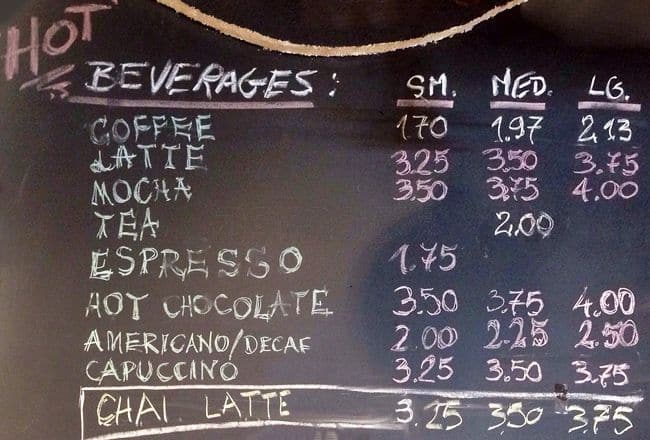 HOT
BEVERAGES: SM. MED. LG.
COFFEE 1.70 1.97 2.13
LATTE 3.25 3.50 3.75
MOCHA 3.50 3.75 4.00
TEA 2.00
ESPRESSO 1.75
HOT CHOCOLATE 3.50 3.75 4.00
AMERICANO/DECAF 2.00 2.25 2.50
CAPUCCINO 3.25 3.50 3.75
CHAI LATTE 3.25 3.50 3.75